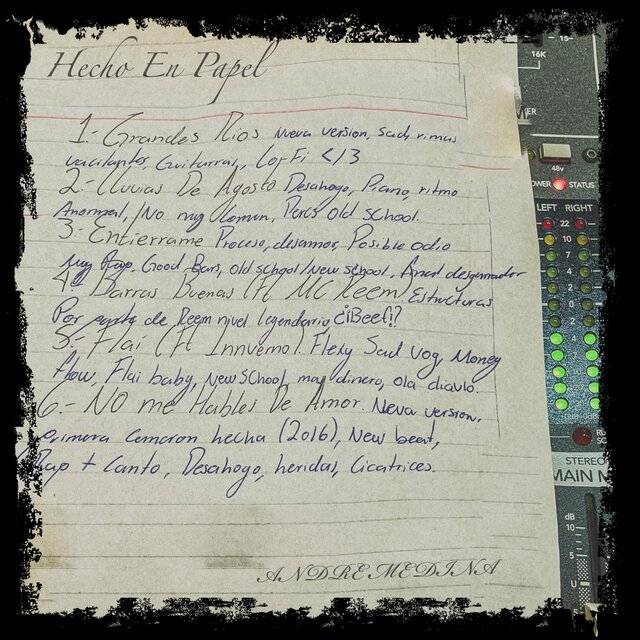 Hecho En Papel
1- Grandes Rios nueva version, sad, rimas
vacilantes, Guitarras, Lo-Fi </3
2- Lluvias De Agosto Desahogo, Piano, ritmo
Anormal, /No muy Comun, Percs old school.
3- Entierrame Proceso, desamor, Posible odio
Muy Rap, Good Bars, old school/New school, Final desgarrador
4- Barras Buenas (Ft MC Reem) Estructuras
Por parte de Reem nivel legendario ¿¡Beef!?
5- Flai (Ft Innverno). Flexy Saul vog Money
flow, Flai baby, New SChool, mas dinero, Ola diavlo.
6.- NO me Hables De Amor. Neva version,
primera cancion hecha (2016), New beat,
Rap + Canto, Desahogo, heridas, Cicatrices.
ANDRE MEDINA
16K
48v
POWER STATUS
LEFT RIGHT
22
10
7
4
2
0
2
STEREO
MAIN M
dB
10
5
U